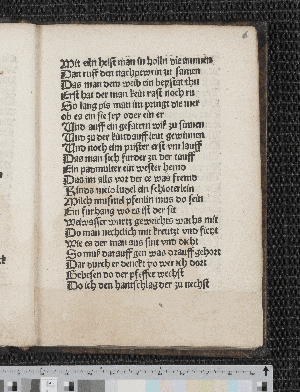 Wie eyn heist man in holn die ammen
Dan rufft den nachpewrin zu samen
Das man dem weib ein beystat thu
Erst hat der man kein rast noch ru
So lang pis man im pringt die mer
ob es ein sey oder ein er
Und auff ein gefatern wiß zu sinnen
Und zu der kindtauff leut gewinnen
Und noch ein prister erst um lauff
Das man sich furder zu der tauff
Ein padmulter ein wester hemd
Das im alls vor der ee was fremd
Kinds ein schloterlein
Milch pfenlin mus do sein
Ein furhang wo es ist der sit
Weiwasser wurtz geweichts wachs mit
Do man nechtlich mit kreutzt und ficht
Wie es der man aus sint und dicht
So muß darauff gen was drauff gehort
Dar durch er denckt wo wer ich dort
Hebesen do der pfeffer wechst
Do ich den hantschlag det zu nechst